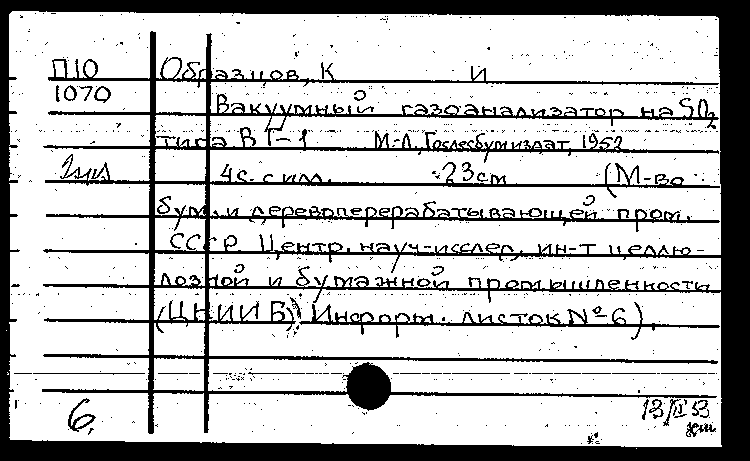 П10 Образцов, К И
1070 Вакуумный газоанализатор на SO2
типа ВГ-1 М-Л, Гослесбумиздат, 1952
4с. с илл. 23см (М-во
бум. и деревоперерабатывающей пром.
СССР Центр. науч-исслед. ин-т целлю-
лозной и бумажной промышленности
(ЦНИИБ) Информ. листок № 6).
6. 13/II 53